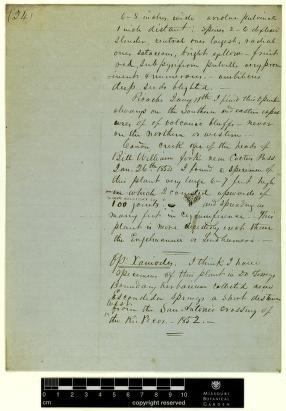 (24.)
6-8 inches wide areolae pulvinate
1 inch distant; Spines 2-6 deflexed
slender, central ones largest, radial
ones setaceous, bright yellow - fruit
red, Subpyriform pulvilli very prom-
inents & numerous. - umbilicus
deep, seeds blighted. -
Peach Jany 19th I find this Opuntia
always on the Southern and eastern expos-
ures of volcanic bluffs - never
on the northern or western -
Cañon creek one of the heads of
Bill William fork near Cactus Pass
Jan. 26th 1854 I found a specimen of
this plant very large 6-7 feet high
on which I counted upwards of
100 joints; and spreading as
many feet in circumference. This
plant is more erect than
the Engelmanni or Lindheimeri. -
Op: Ramosa. I think I have
specimens of this plant in Dr Torreys
Boundary herbarium collected near
Escondido Springs a short distance
west from the San Antonio crossing of
the Rio Pecos. - 1852. -
0 1 2 3 4 5 6 7 8 9 10
cm
copyright reserved
MISSOURI
BOTANICAL
GARDEN